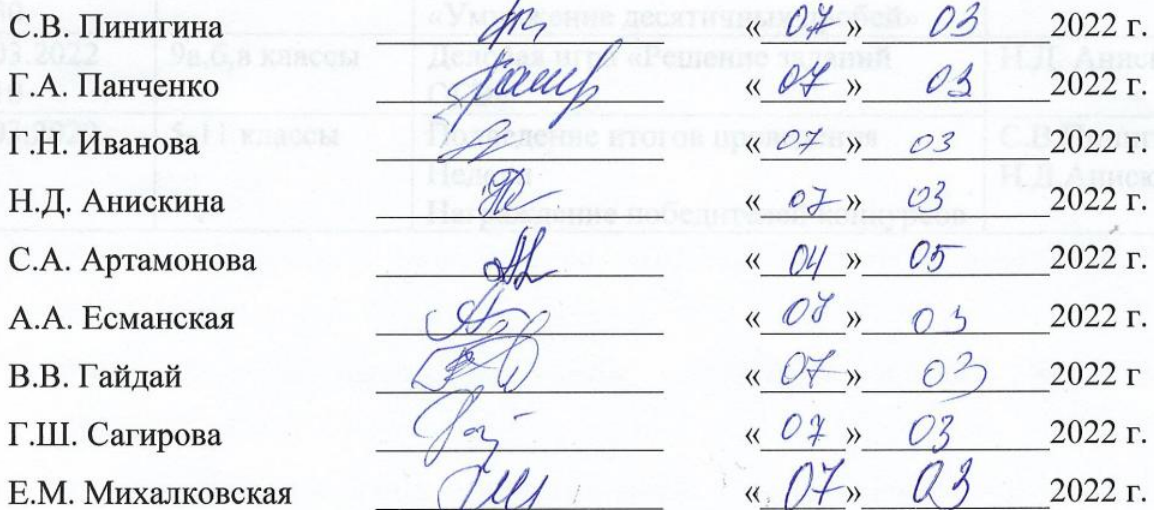 С.В. Пинигина « 07 » 03 2022 г.
Г.А. Панченко « 07 » 03 2022 г.
Г.Н. Иванова « 07 » 03 2022 г.
Н.Д. Анискина « 07 » 03 2022 г.
С.А. Артамонова « 04 » 05 2022 г.
А.А. Есманская « 07 » 03 2022 г.
В.В. Гайдай « 07 » 03 2022 г
Г.Ш. Сагирова « 07 » 03 2022 г.
Е.М. Михалковская « 07 » 03 2022 г.